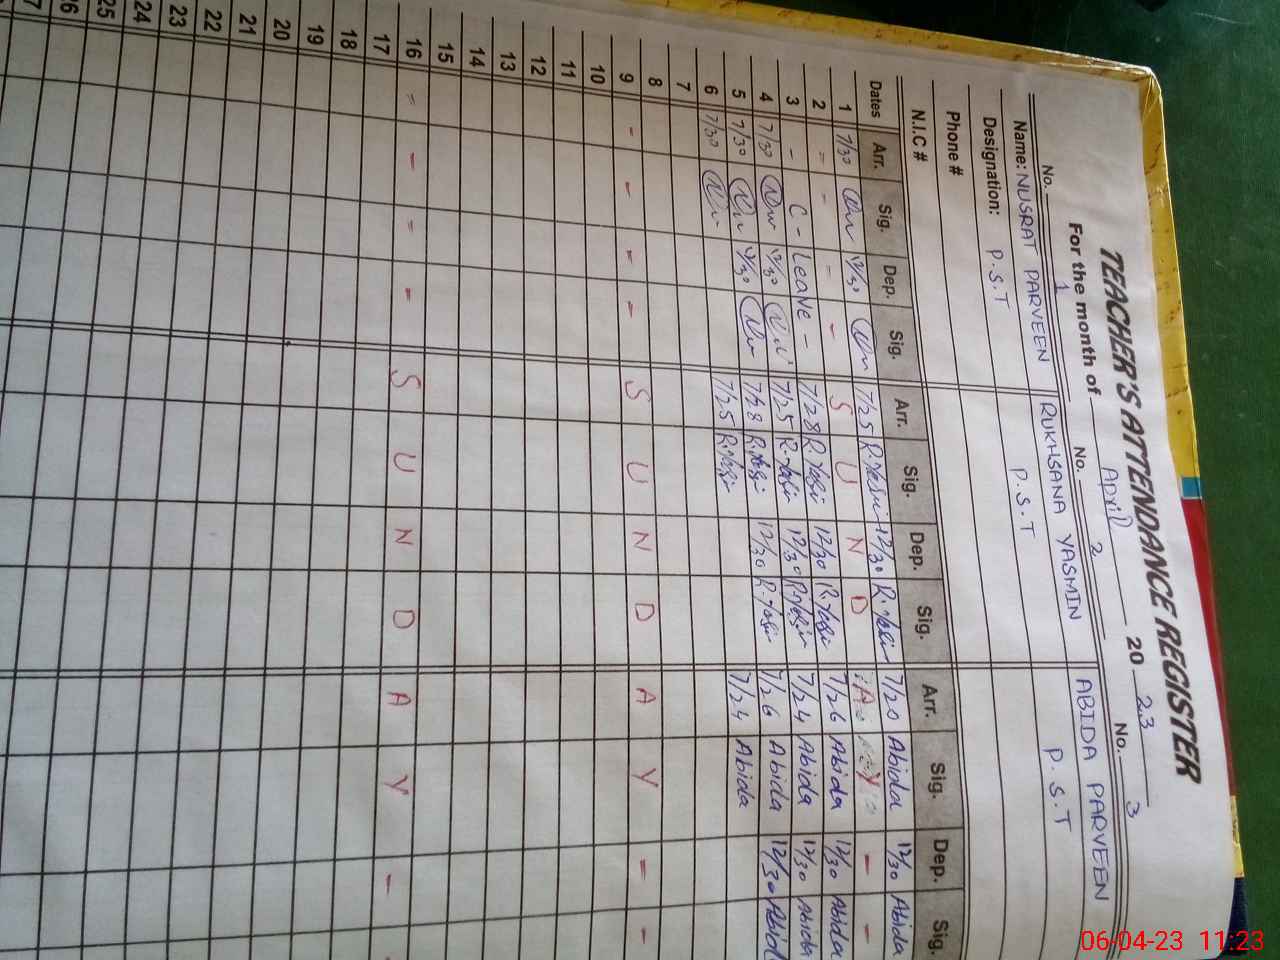 TEACHER'S ATTENDANCE REGISTER
For the month of April 2023
No. 1 No. 2 No. 3
Name: NUSRAT PARVEEN RUKHSANA YASMIN ABIDA PARVEEN
Designation: P.S.T P.S.T P.S.T
Phone #
N.I.C #
Dates Arr. Sig. Dep. Sig. Arr. Sig. Dep. Sig. Arr. Sig. Dep. Sig.
1 7/30 12/30 7/25 12/30 7/20 Abida 12/30 Abida
2 - - - - S U N D A Y - -
3 - C - Leave - 7/28 12/30 7/26 Abida 12/30 Abida
4 7/30 12/30 7/25 12/30 7/24 Abida 12/30 Abida
5 7/30 12/30 7/28 12/30 7/26 Abida 12/30 Abida
6 7/30 7/25 7/24 Abida
7
8
9 - - - - S U N D A Y - -
10
11
12
13
14
15
16 - - - - S U N D A Y -
17
18
19
20
21
22
23
24
25
26
06-04-23 11:23